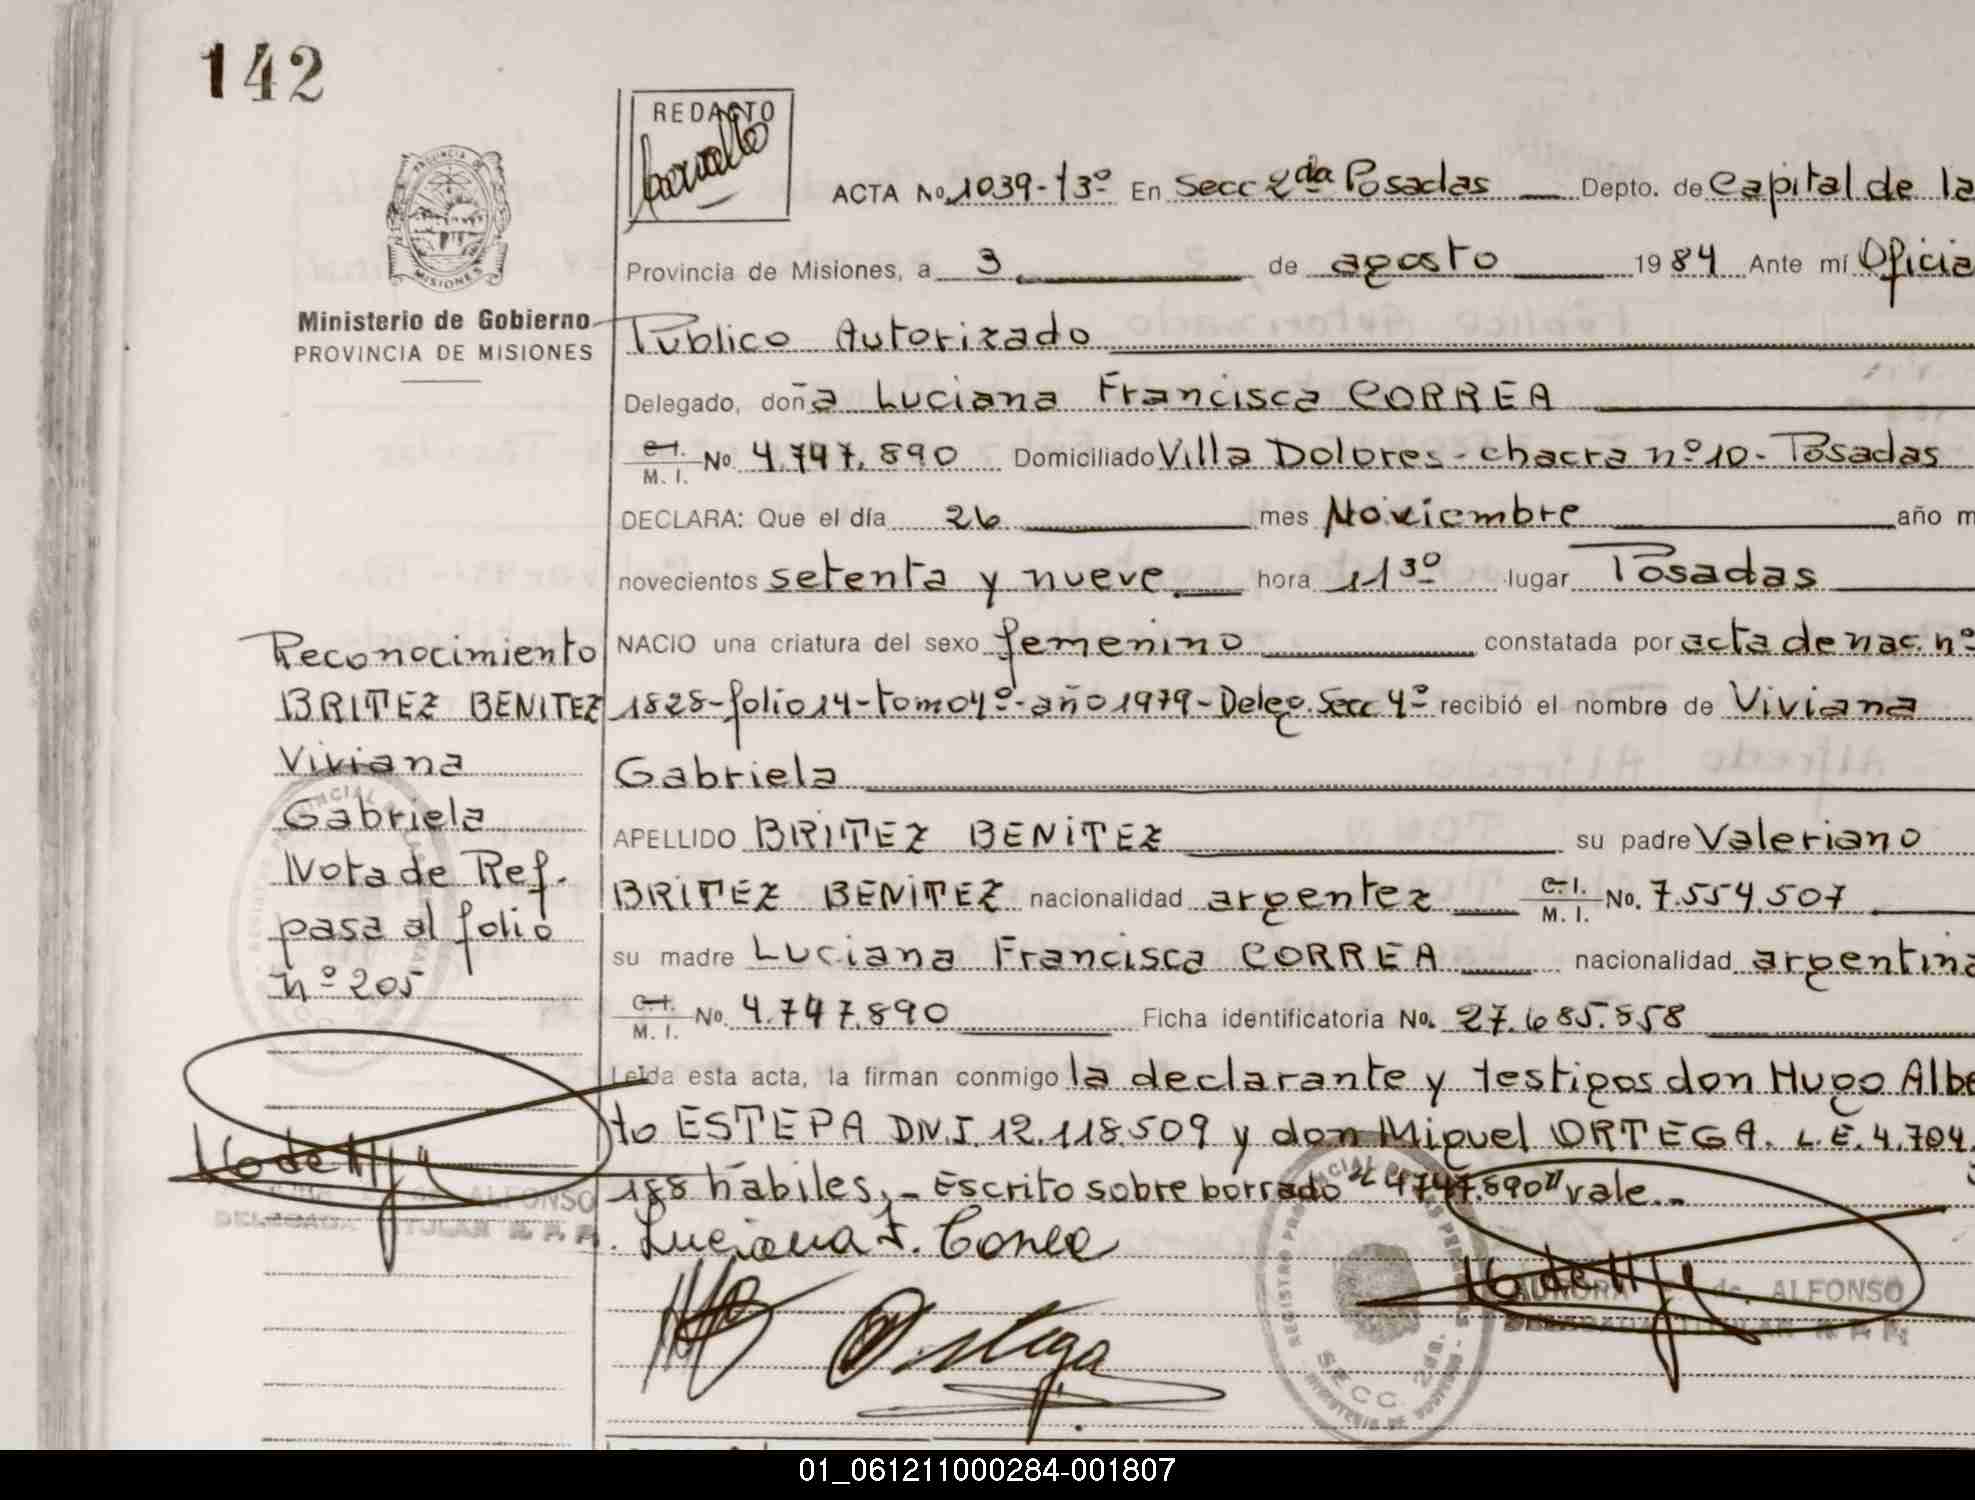 142
REDACTO
PROVINCIA DE
MISIONES
Ministerio de Gobierno
PROVINCIA DE MISIONES
ACTA No. 1039-T3º En Secc 2da Posadas Depto. de Capital de la
Provincia de Misiones, a 3 de agosto 1984 Ante mí Oficia
Público Autorizado
Delegado, doña Luciana Francisca CORREA
C.I. M.I. No. 4.747.890 Domiciliado Villa Dolores - chacra nº 10 - Posadas
DECLARA: Que el día 26 mes Noviembre año m
novecientos setenta y nueve hora 11 30 lugar Posadas
NACIO una criatura del sexo femenino constatada por acta de nac. nº
1828-folio 14-tomo 4º-año 1979-Deleg. Secc 4º recibió el nombre de Viviana
Gabriela
APELLIDO BRITEZ BENITEZ su padre Valeriano
BRITEZ BENITEZ nacionalidad argentez C.I. M.I. No. 7.554.507
su madre Luciana Francisca CORREA nacionalidad argentina
C.I. M.I. No. 4.747.890 Ficha identificatoria No. 27.685.858
Leída esta acta, la firman conmigo la declarante y testigos don Hugo Albe
to ESTEPA DN.I. 12.118.509 y don Miguel ORTEGA. L.E. 4.704.
188 hábiles.- Escrito sobre borrado "4747.890" vale.-
Luciana F. Correa
Ortega
AURORA de ALFONSO
DELEGADA TITULAR R.P.P.
REGISTRO PROVINCIAL DE LAS PERSONAS
SECC. 2da.
MINISTERIO DE GOBIERNO
Reconocimiento
BRITEZ BENITEZ
Viviana
Gabriela
Nota de Ref.
pasa al folio
nº 205
de ALFONSO
DELEGADA TITULAR R.P.P.
01_061211000284-001807